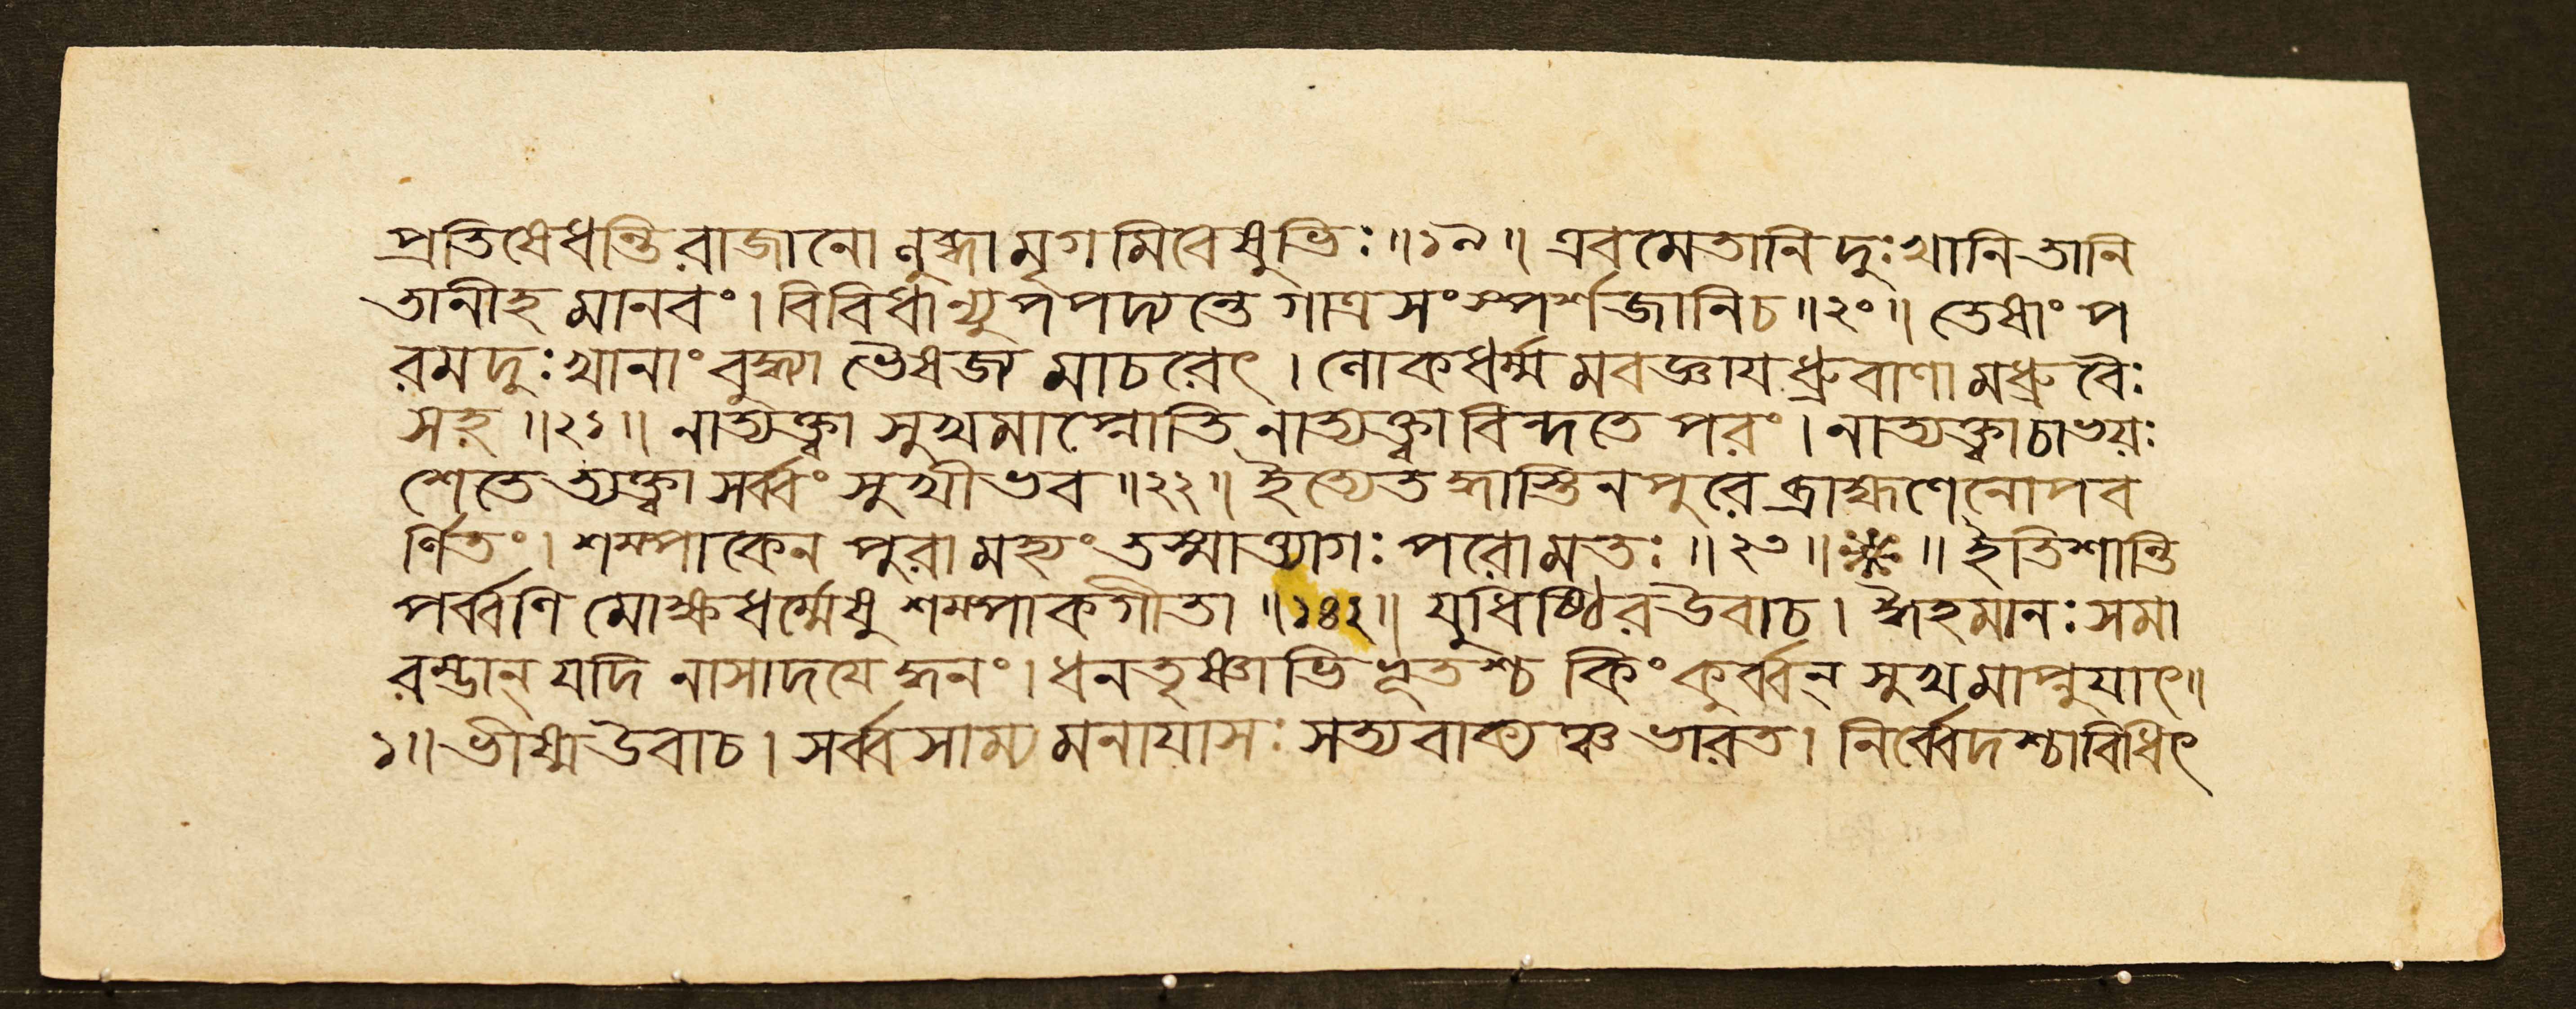 প্রতিষেধন্তি রাজানো লুব্ধা মৃগমিবেষুভিঃ ॥১৯॥ এবমেতানি দুঃখানি তানি
তানীহ মানবং । বিবিধান্যুপপদ্যন্তে গাত্রসংস্পর্শজানি চ ॥২০॥ তেষাং প
রমদুঃখানাং বুদ্ধ্যা ভৈষজ্যমাচরেৎ । লোকধর্ম্মমবজ্ঞায ধ্রুবাণামধ্রুবৈঃ
সহ ॥২১॥ নাত্যক্ত্বা সুখমাপ্নোতি নাত্যক্ত্বা বিন্দতে পরং । নাত্যক্ত্বা চাভয়ঃ
শেতে ত্যক্ত্বা সর্ব্বং সুখী ভব ॥২২॥ ইত্যেতদ্ধাস্তিনপুরে ব্রাহ্মণেনোপব
র্ণিতং । শম্পাকেন পুরা মহ্যং তস্মাত্ত্যাগঃ পরো মতঃ ॥২৩॥ ॥ ইতি শান্তি
পর্ব্বণি মোক্ষধর্ম্মেষু শম্পাকগীতা ॥১৪২॥ যুধিষ্ঠির উবাচ । ঈহমানঃ সমা
রম্ভান্ যদি নাসাদযেদ্ধনং । ধনতৃষ্ণাভিভূতশ্চ কিং কুর্ব্বন্ সুখমাপ্নুযাৎ॥
১॥ ভীষ্ম উবাচ । সর্ব্বসাম্যমনাযাসঃ সত্যবাক্যঞ্চ ভারত । নির্ব্বেদশ্চাবিধিৎ